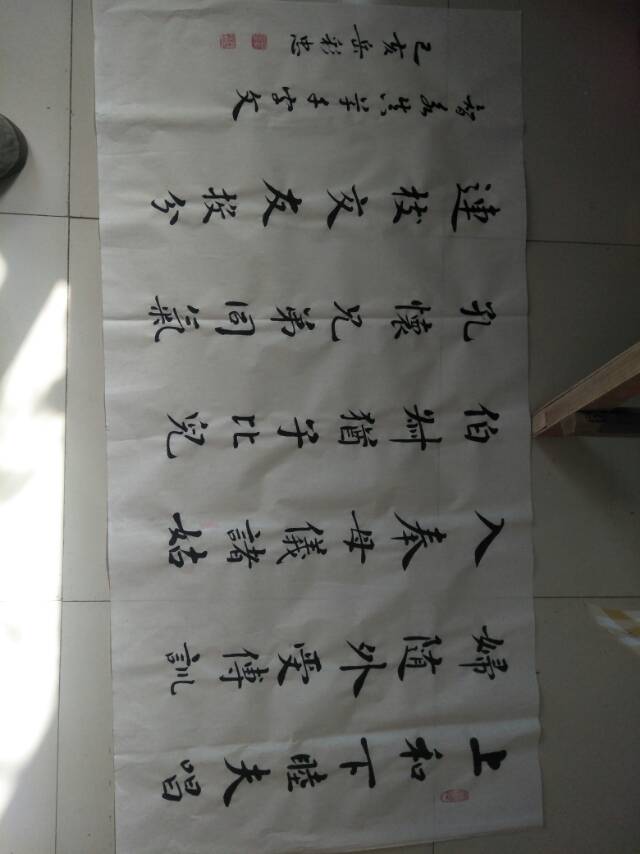 上和下睦夫唱
婦随外受傅訓
入奉母儀諸姑
伯叔猶子比兒
孔懷兄弟同氣
連枝交友投分
智永真草千字文
己亥岳彩忠